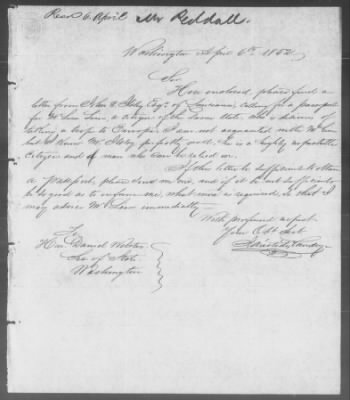 Recd 6. April Mr Reddall.
Washington April 6th, 1852
Sir
Here enclosed, please find a
letter from John A. Esq. of Louisiana, asking for a passport
for Mr a citizen of the same state. He is desirous of
taking a trip to Europe. I am not acquainted with Mr
but I know Mr perfectly well, he is a highly respectable
citizen and a man who can be relied on.
If the letter be sufficient to obtain
a passport, please send me one, and if it be not sufficient
be so good as to inform me, what more is required, so that I
may advise Mr immediately.
With profound respect
Your Obt Sevt
To
Hon Daniel Webster
Sec of State
Washington